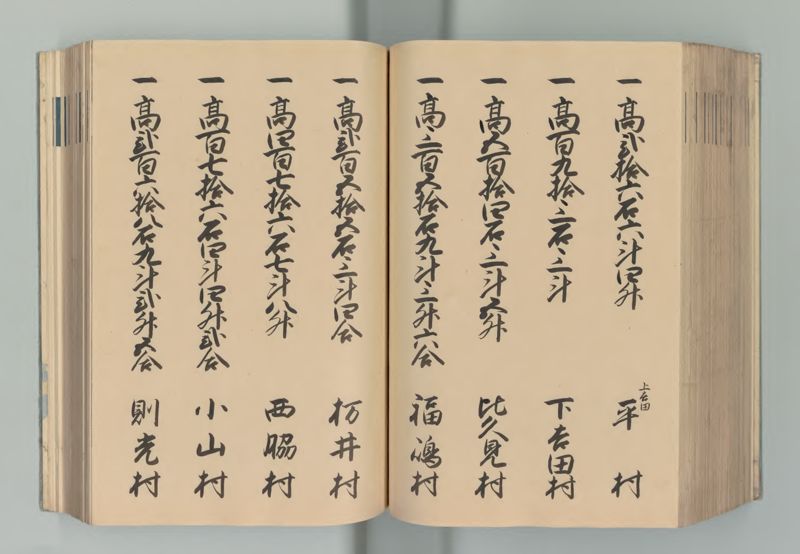 一高弐拾六石六斗四升 上吉田 平村
一高百九拾三石三斗 下吉田村
一高五百拾四石三斗五升 比久見村
一高三百五拾石九斗三升六合 福嶋村
一高弐百五拾五石三斗四合 栃井村
一高四百七拾六石七斗八升 西脇村
一高百七拾六石四斗四升弐合 小山村
一高弐百六拾八石九斗弐升五合 則光村